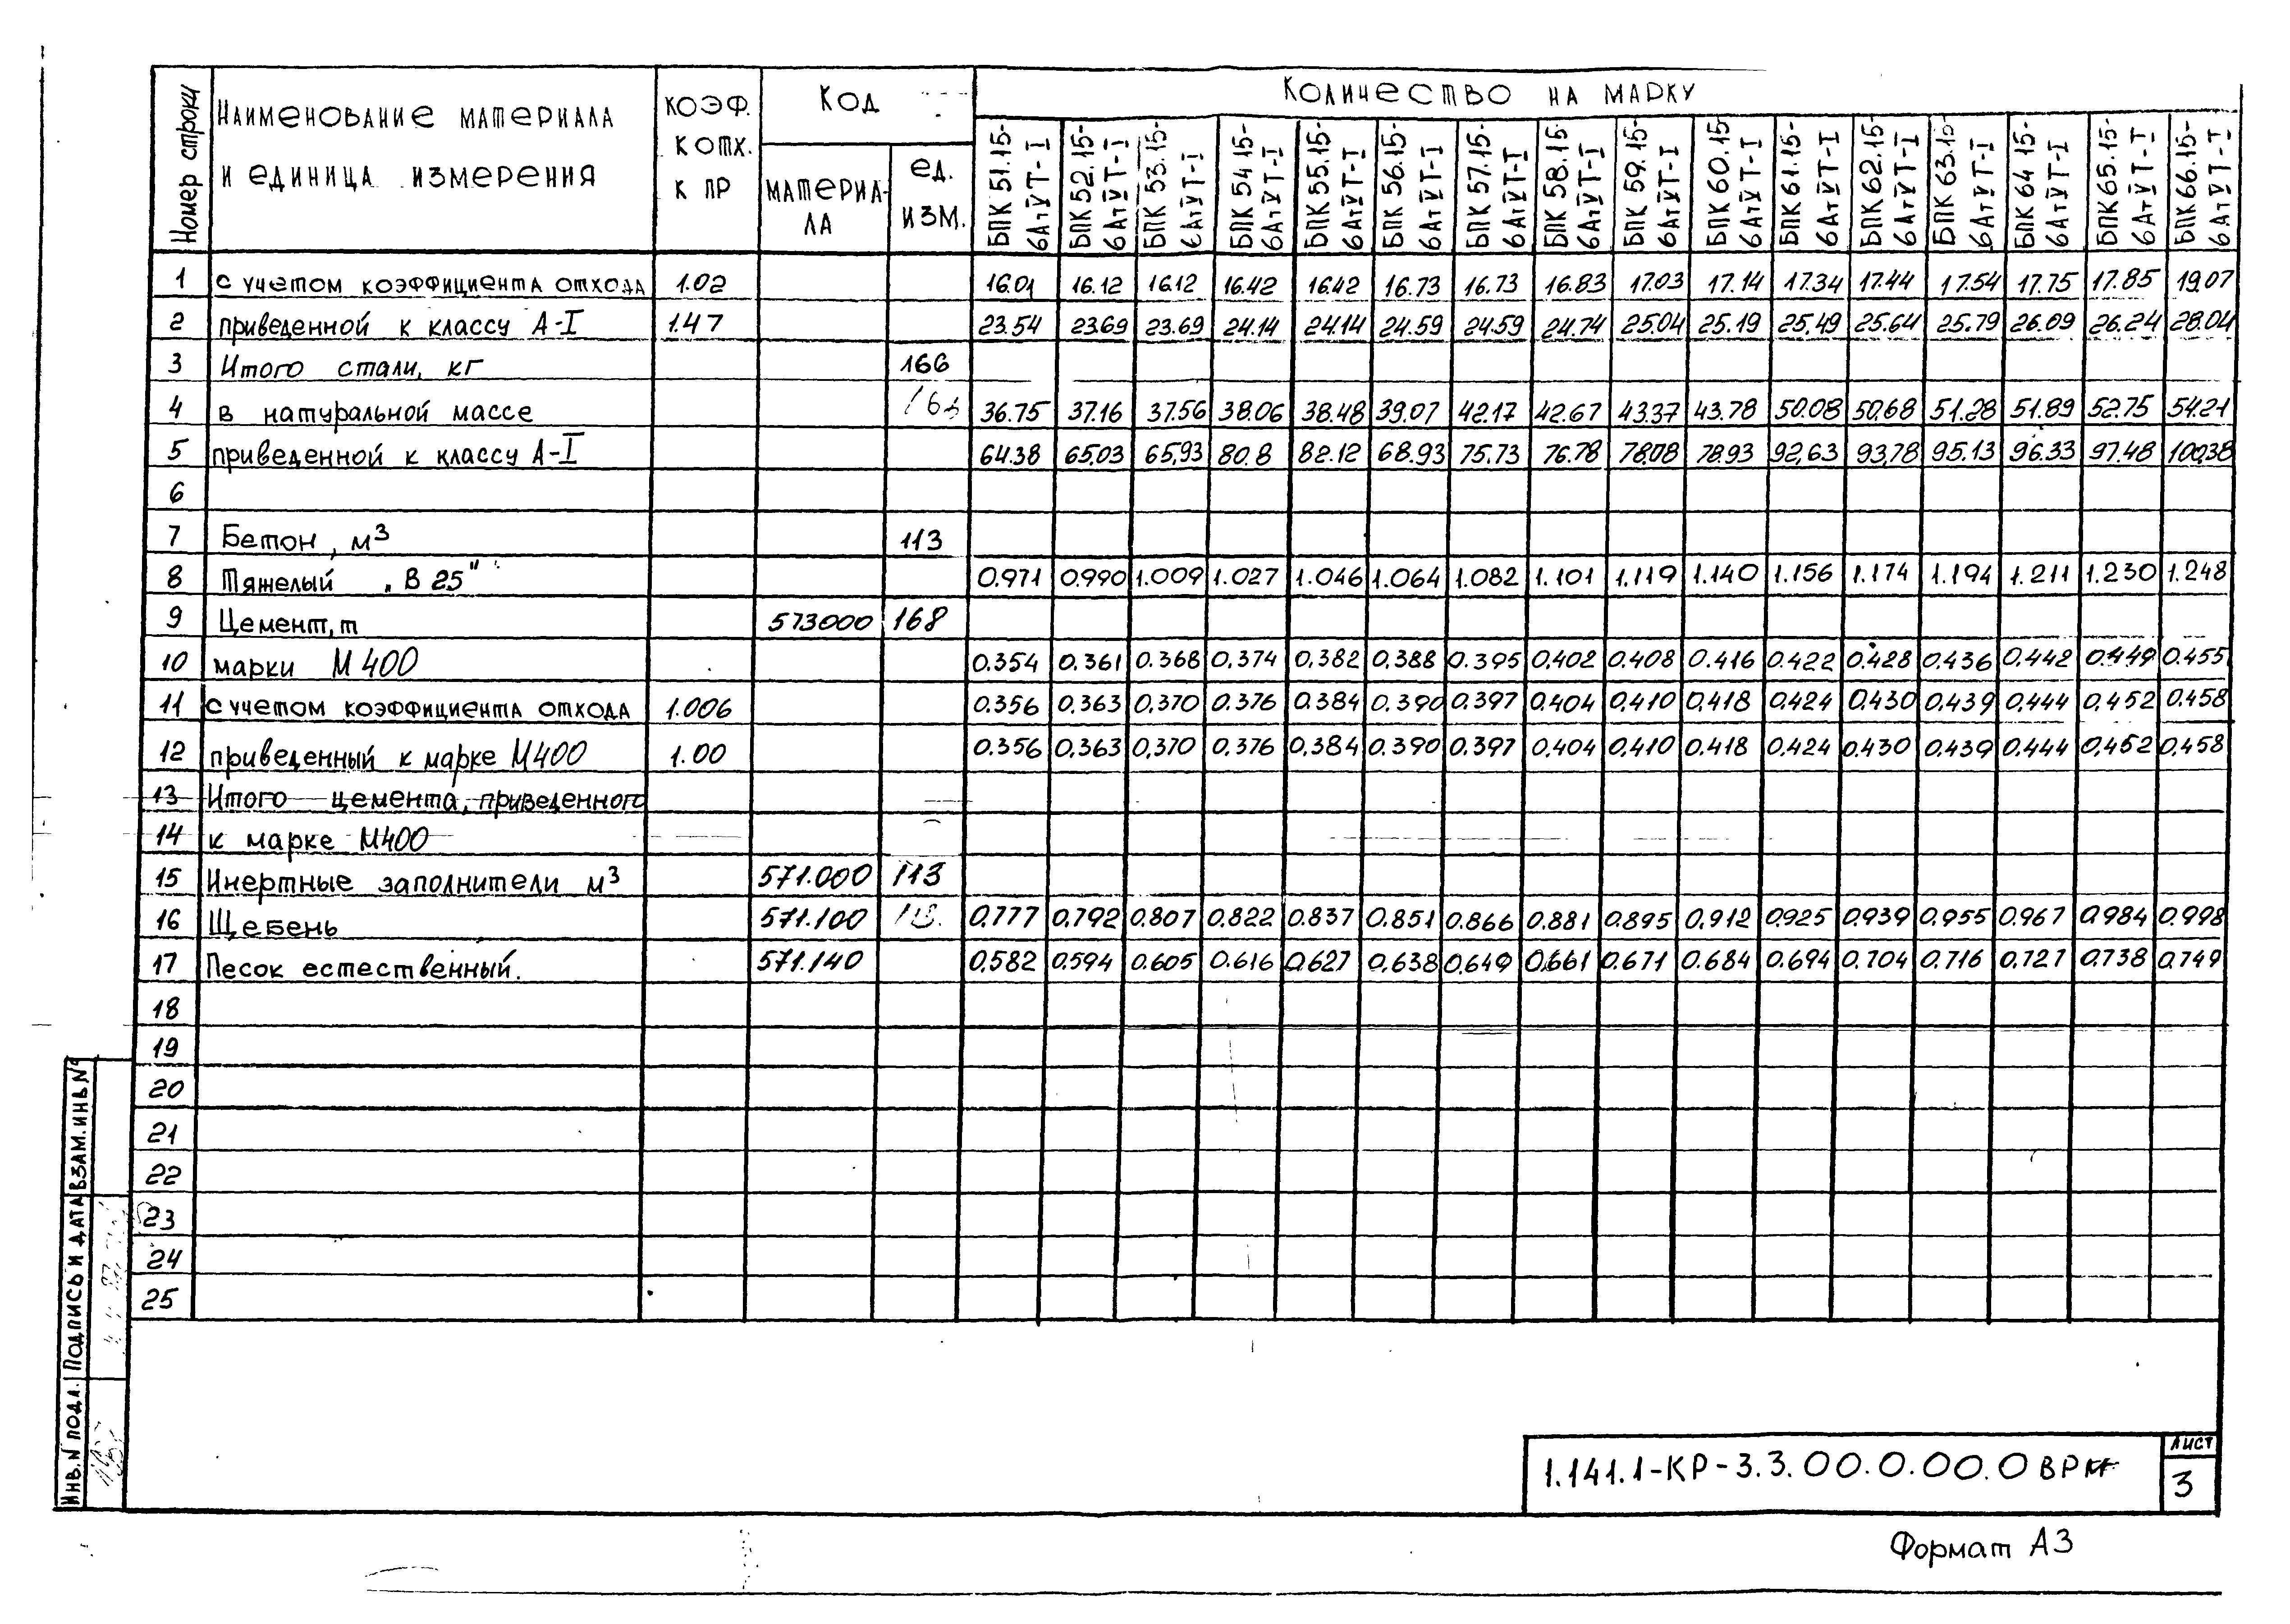 Номер строки | Наименование материала и единица измерения | Коэф. К отх. К пр | Код | Количество на марку
материала | ед. изм. | БПК 51.15-6АтVТ-I | БПК 52.15-6АтVТ-I | БПК 53.15-6АтVТ-I | БПК 54.15-6АтVТ-I | БПК 55.15-6АтVТ-I | БПК 56.15-6АтVТ-I | БПК 57.15-6АтVТ-I | БПК 58.15-6АтVТ-I | БПК 59.15-6АтVТ-I | БПК 60.15-6АтVТ-I | БПК 61.15-6АтVТ-I | БПК 62.15-6АтVТ-I | БПК 63.15-6АтVТ-I | БПК 64.15-6АтVТ-I | БПК 65.15-6АтVТ-I | БПК 66.15-6АтVТ-I
1 | с учетом коэффициента отхода | 1.02 | 16.01 | 16.12 | 16.12 | 16.42 | 16.42 | 16.73 | 16.73 | 16.83 | 17.03 | 17.14 | 17.34 | 17.44 | 17.54 | 17.75 | 17.85 | 19.07
2 | приведенной к классу А-I | 1.47 | 23.54 | 23.69 | 23.69 | 24.14 | 24.14 | 24.59 | 24.59 | 24.74 | 25.04 | 25.19 | 25.49 | 25.64 | 25.79 | 26.09 | 26.24 | 28.04
3 | Итого стали, кг | 166
4 | в натуральной массе | 36.75 | 37.16 | 37.56 | 38.06 | 38.48 | 39.07 | 42.17 | 42.67 | 43.37 | 43.78 | 50.08 | 50.68 | 51.28 | 51.89 | 52.75 | 54.21
5 | приведенной к классу А-I | 64.38 | 65.03 | 65,93 | 80.8 | 82.12 | 68.93 | 75.73 | 76.78 | 78.08 | 78.93 | 92,63 | 93,78 | 95.13 | 96.33 | 97.48 | 100,38
6
7 | Бетон, м³ | 113
8 | Тяжелый „В 25" | 0.971 | 0.990 | 1.009 | 1.027 | 1.046 | 1.064 | 1.082 | 1.101 | 1.119 | 1.140 | 1.156 | 1.174 | 1.194 | 1.211 | 1.230 | 1.248
9 | Цемент, т | 573000 | 168
10 | марки М 400 | 0.354 | 0.361 | 0.368 | 0.374 | 0,382 | 0.388 | 0.395 | 0.402 | 0.408 | 0.416 | 0.422 | 0.428 | 0.436 | 0.442 | 0.449 | 0.455
11 | с учетом коэффициента отхода | 1.006 | 0.356 | 0,363 | 0,370 | 0.376 | 0.384 | 0.390 | 0.397 | 0.404 | 0.410 | 0,418 | 0.424 | 0,430 | 0.439 | 0.444 | 0.452 | 0.458
12 | приведенный к марке М400 | 1.00 | 0.356 | 0,363 | 0,370 | 0,376 | 0,384 | 0.390 | 0.397 | 0.404 | 0.410 | 0.418 | 0.424 | 0.430 | 0.439 | 0.444 | 0,452 | 0,458
13 | Итого цемента, приведенного
14 | к марке М400
15 | Инертные заполнители м³ | 571.000 | 113
16 | Щебень | 571.100 | 0.777 | 0.792 | 0.807 | 0.822 | 0.837 | 0.851 | 0.866 | 0.881 | 0.895 | 0.912 | 0.925 | 0.939 | 0.955 | 0.967 | 0.984 | 0.998
17 | Песок естественный. | 571.140 | 0,582 | 0.594 | 0.605 | 0.616 | 0.627 | 0.638 | 0.649 | 0.661 | 0.671 | 0.684 | 0.694 | 0.704 | 0.716 | 0.727 | 0.738 | 0.749
18
19
20
21
22
23
24
25
Инв. N подл. | Подпись и дата | Взам. инв N°
1.141.1-КР-3.3.00.0.00.0 ВРМ
Лист
3
Формат А3